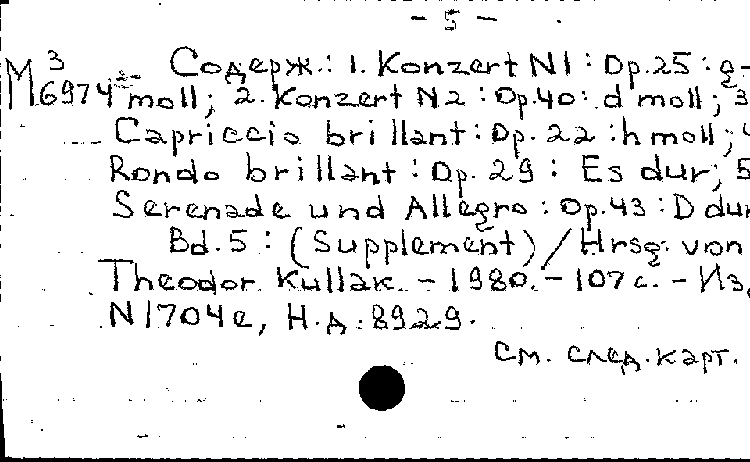 - 5 -
М 3 Содерж.: 1. Konzert N1 : Op.25 : g-
6974 moll; 2. Konzert N2 : Op.40 : d moll; 3
Capriccio brillant : Op. 22 : h moll;
Rondo brillant : Op. 29 : Es dur; 5
Serenade und Allegro : Op.43 : D dur
Bd. 5 : (Supplement) / Hrsg. von
Theodor Kullak. - 1980. - 107 с. - Из,
N 1704 е, Н.д.: 8929.
См. след. карт.